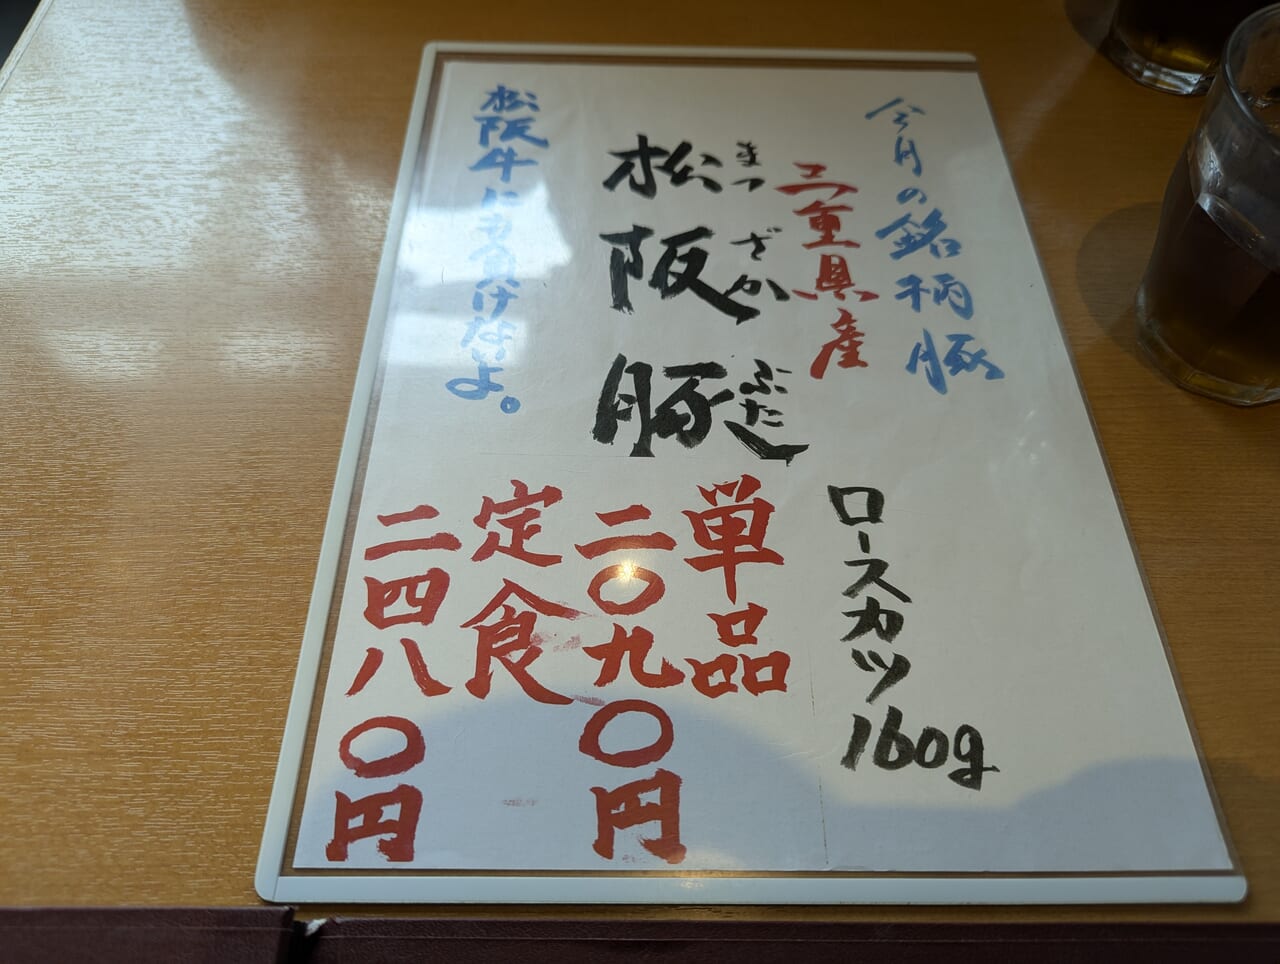 今月の銘柄豚
三重県産
まつざかぶた
松阪豚
松阪牛にも負けないよ。
ロースカツ160g
単品
二〇九〇円
定食
二四八〇円